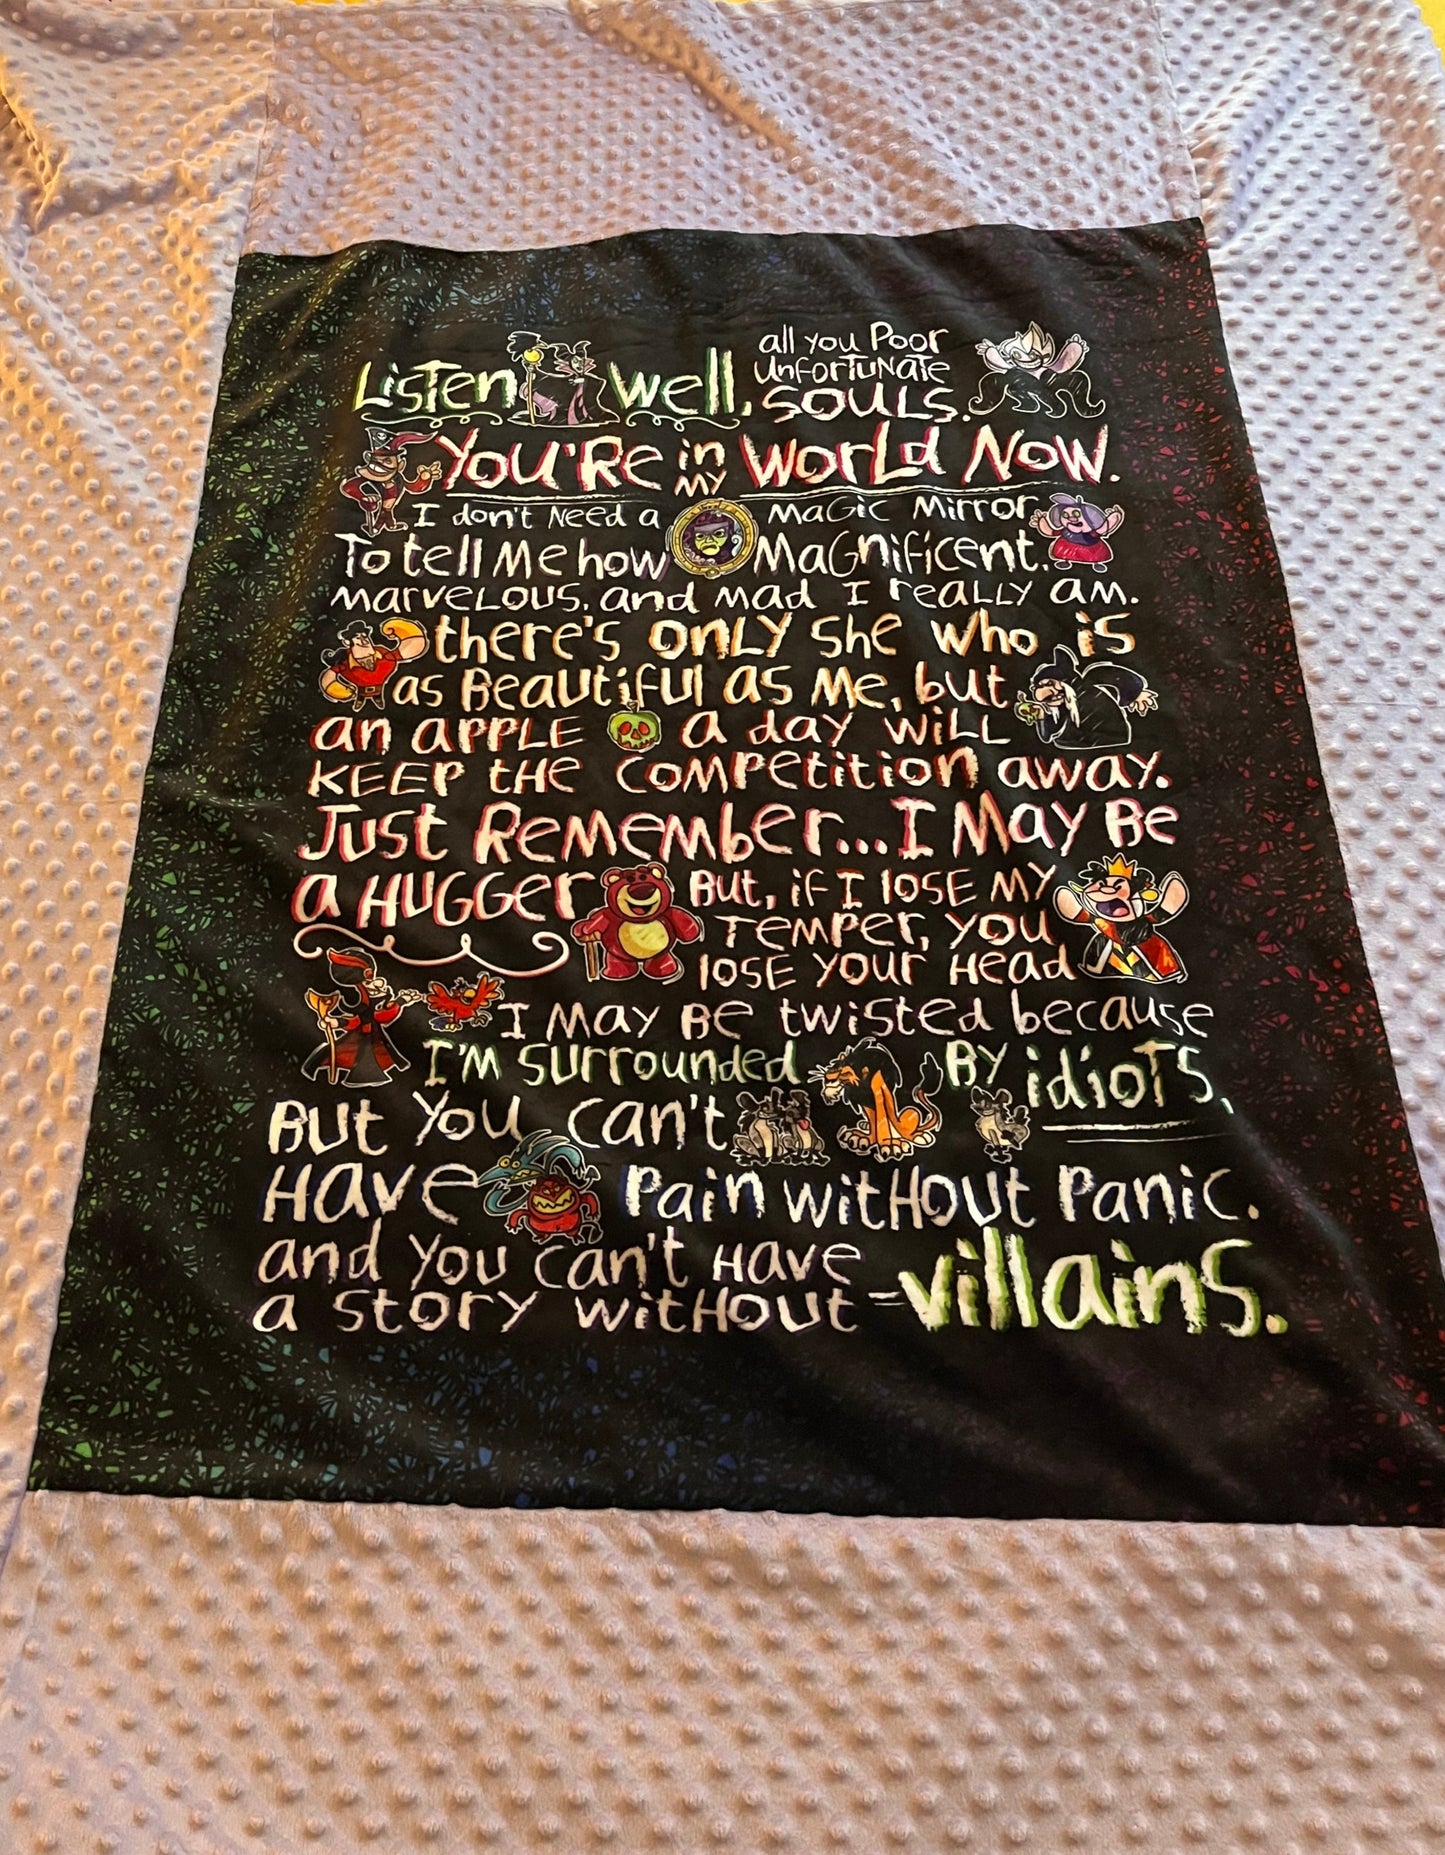 Listen well, all you Poor unfortunate souls.
You're in my World Now.
I don't need a magic mirror
To tell me how magnificent,
marvelous, and mad I really am.
there's only she who is
as beautiful as me, but
an apple a day will
keep the competition away.
Just remember...I may be
a hugger But, if I lose my
temper, you
lose your head
I may be twisted because
I'm surrounded by idiots,
But you can't
have Pain without Panic.
and you can't have
a story without villains.